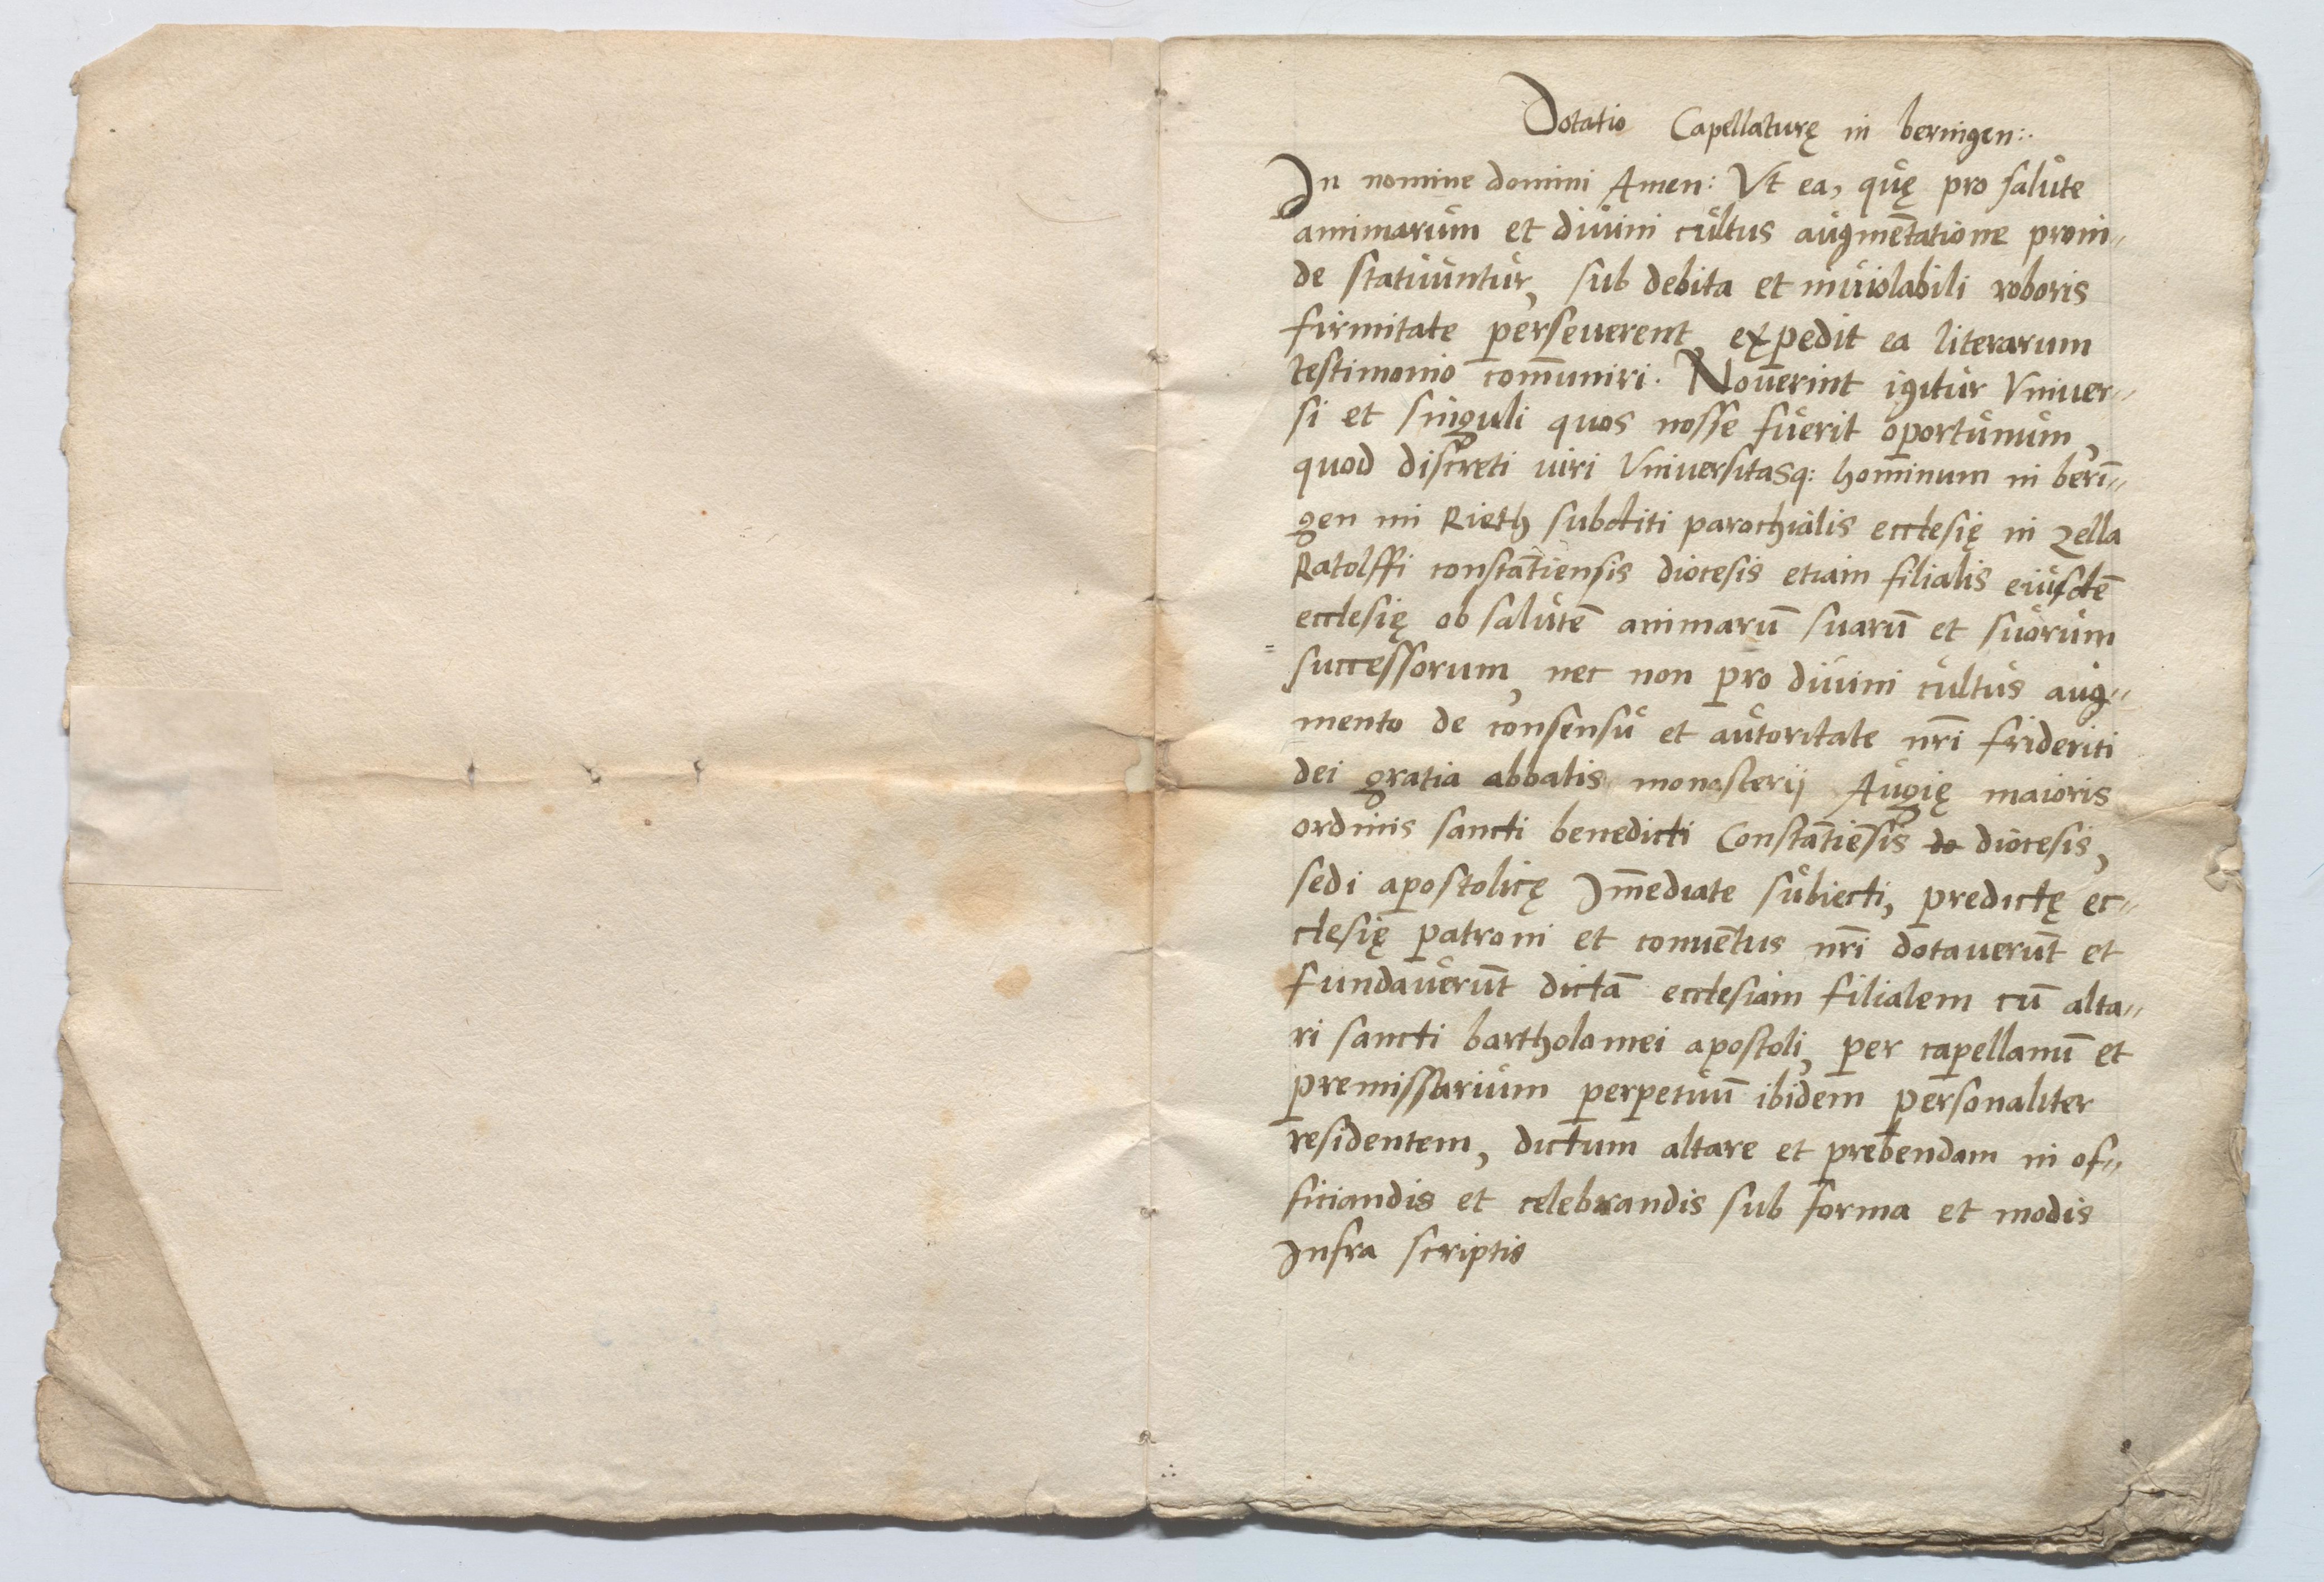 Dotatio Capellaturę in beringen:.
In nomine domini Amen: Vt ea, quę pro salute
animarum et diuini cultus augmētatione proui„
de statuuntur, sub debita et inuiolabili roboris
firmitate perseuerent, expedit ea literarum
testimonio com̄uniri. Nouerint igitur Vniuer„
si et singuli quos nosse fuerit oportunum,
quod discreti uiri Vniuersitasq: hominum in berī„
gen im Rieth subditi parochialis ecclesię in zella
Ratolffi constātiensis diocesis etiam filialis eiusdē
ecclesię ob salutē animarū suarū et suorum
successorum, nec non pro diuini cultus aug„
mento de consensu et autoritate nr̄i friderici
dei gratia abbatis monasterij Augię maioris
ordinis sancti benedicti Constātiēsis do diocesis,
sedi apostolicę Im̄ediate subiecti, predictę ec„
clesię patroni et conuētus nr̄i dotauerūt et
fundauerūt dictā ecclesiam filialem cū alta„
ri sancti bartholamei apostoli, per capellanū et
premissarium perpetuū ibidem personaliter
residentem, dictum altare et prebendam in of„
ficiandis et celebrandis sub forma et modis
Infra scriptis